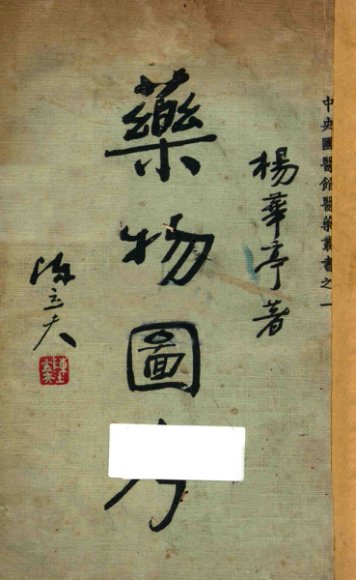 中央國醫館醫藥叢書之一
楊華亭著
藥物圖
陳立夫